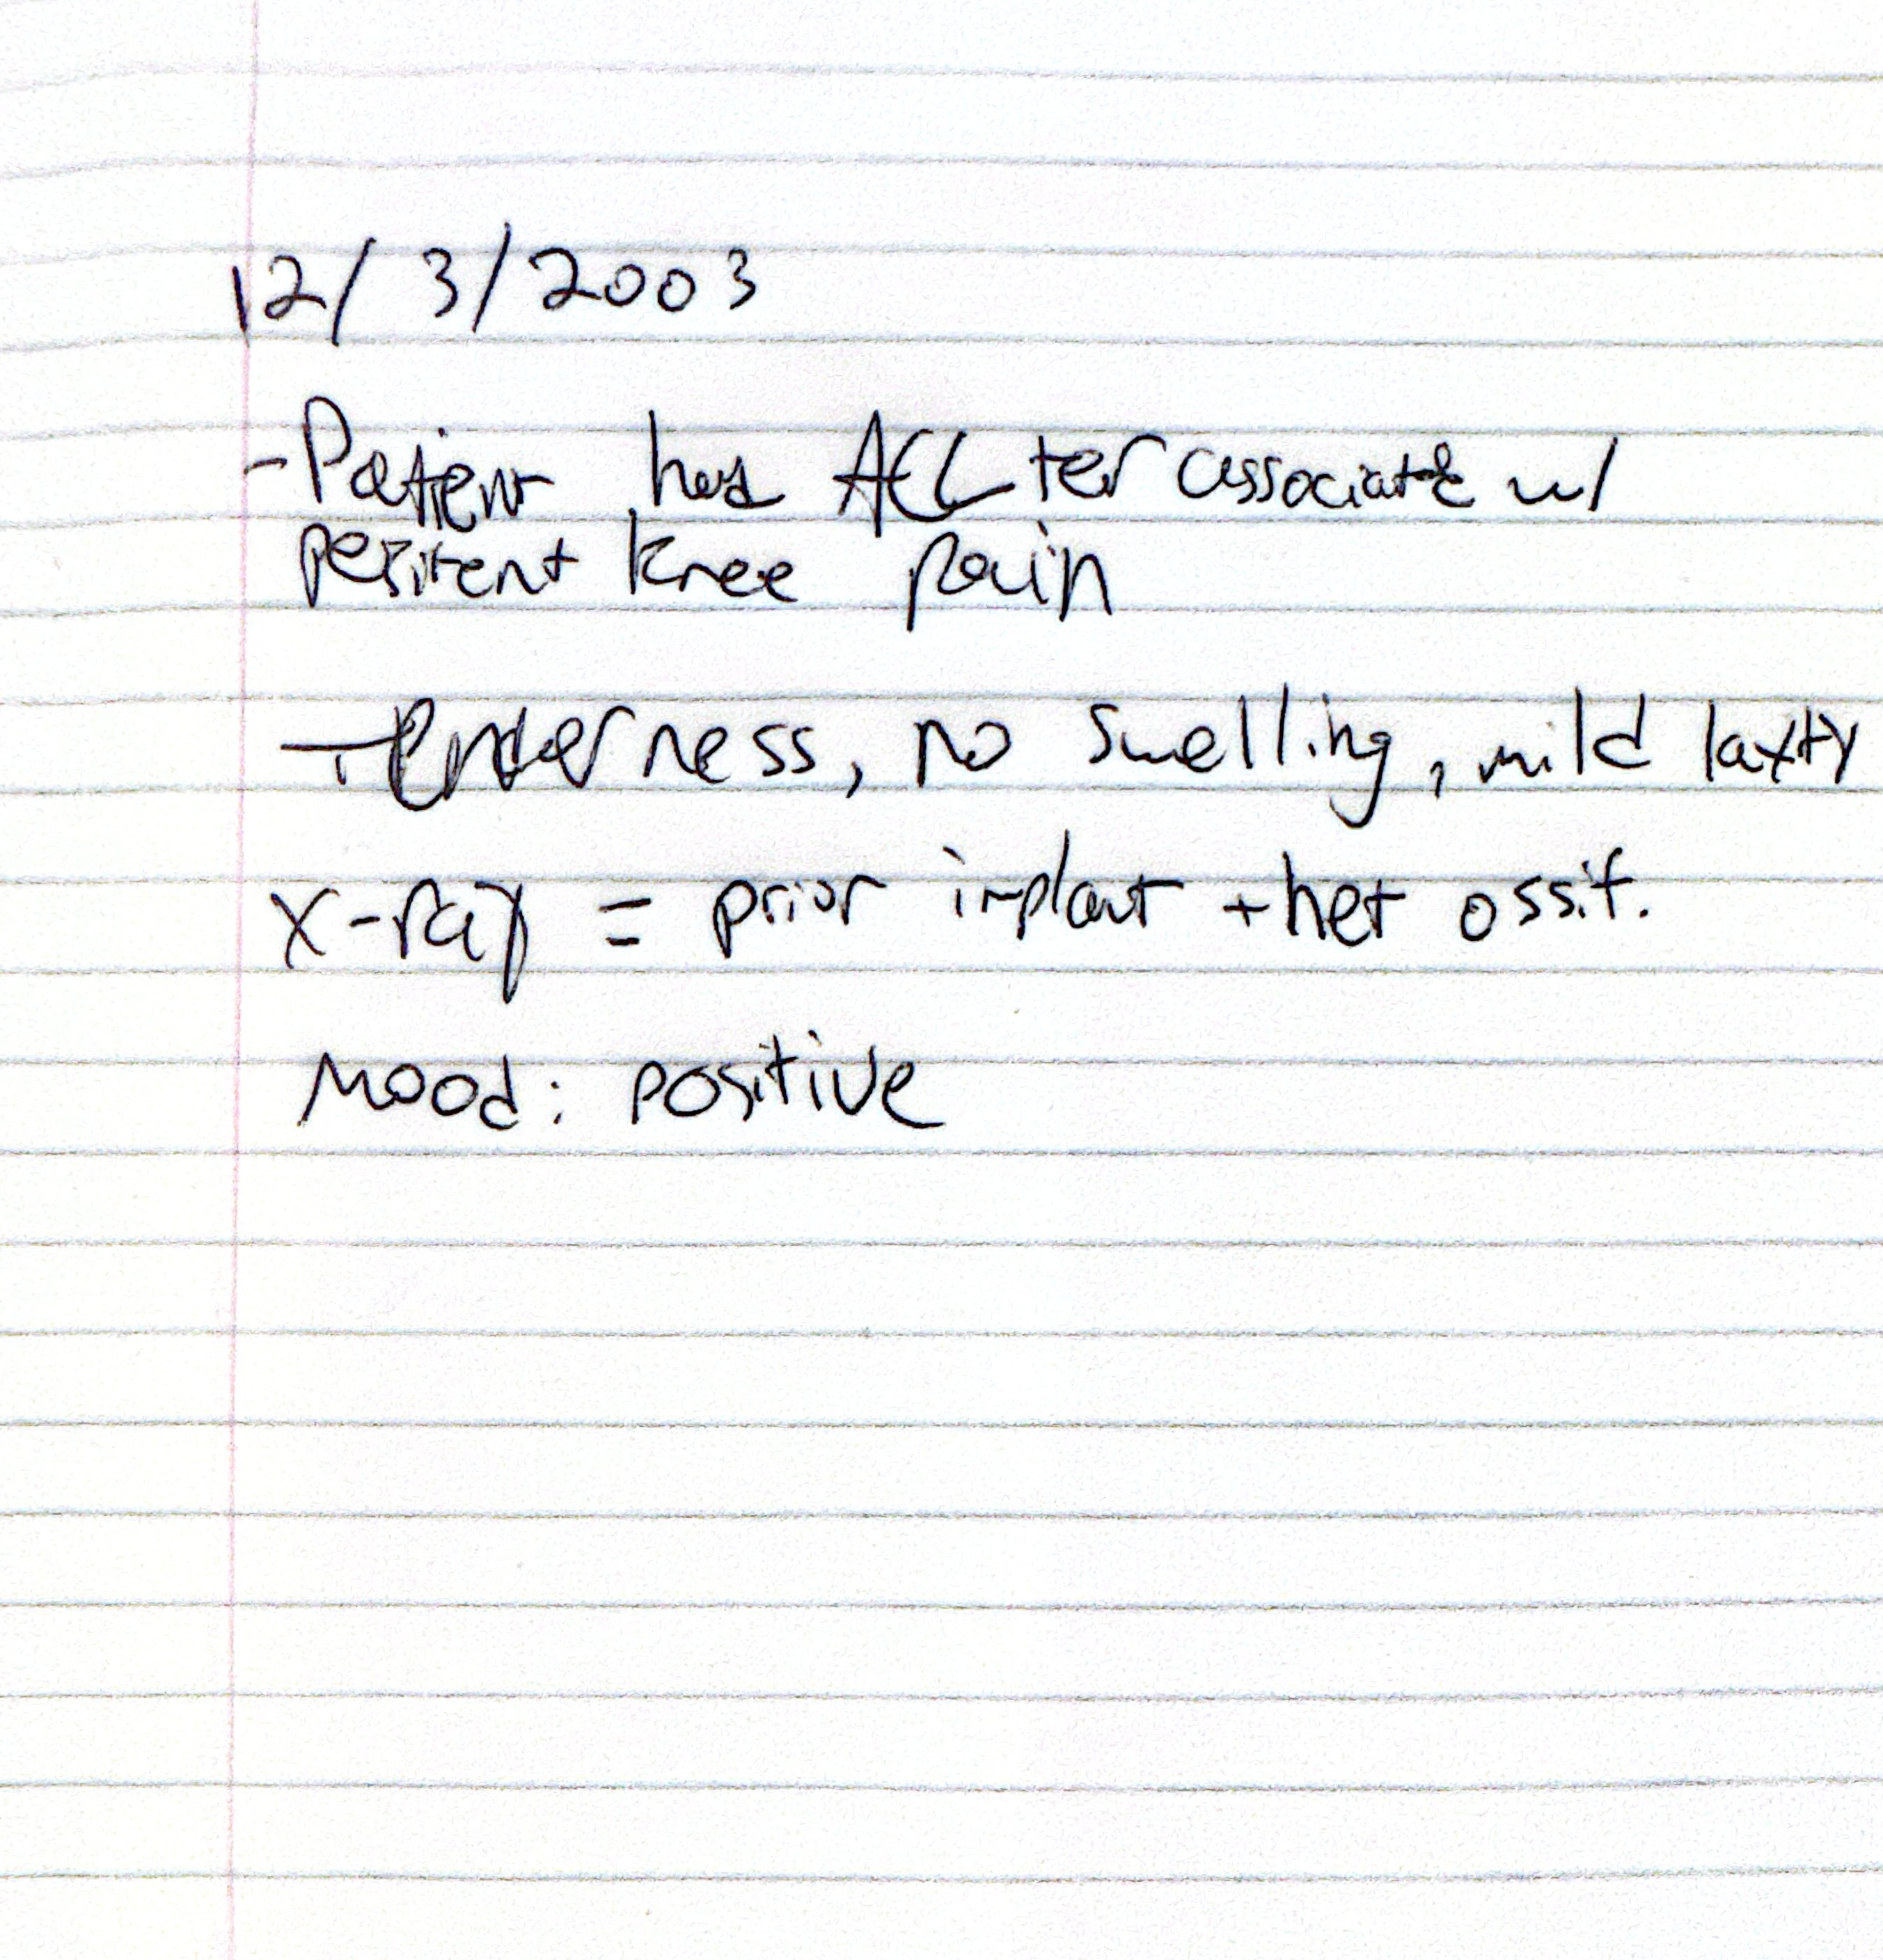 12/3/2003
- Patient has ACL ter associate w/
persitent knee pain
- tenderness, no swelling, mild laxity
X-ray = prior implant + het ossif.
Mood: positive